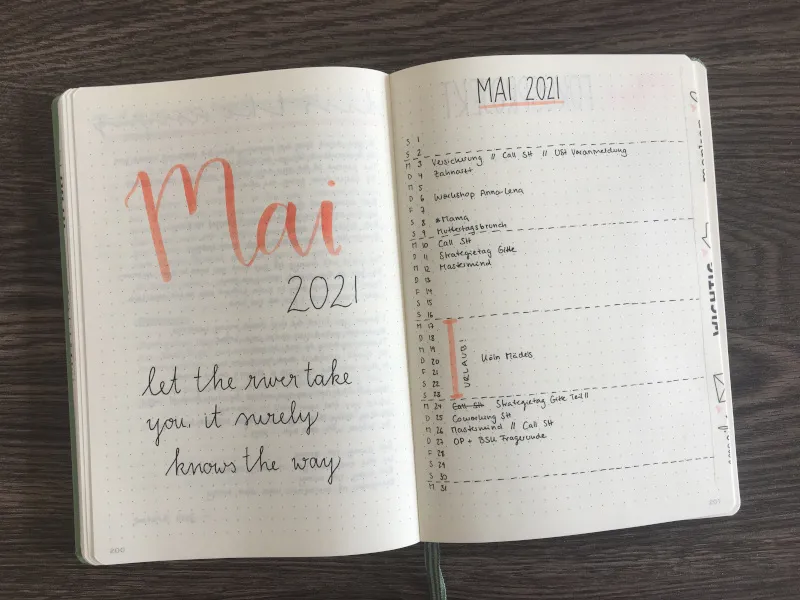 Mai
2021
let the river take
you, it surely
knows the way
MAI 2021
S 1
S 2
M 3 Versicherung // Call SH // USt Voranmeldung
D 4 Zahnarzt
M 5
D 6 Workshop Anna-Lena
F 7
S 8 *Mama
S 9 Muttertagsbrunch
M 10 Call SH
D 11 Strategietag Gitte
M 12 Mastermind
D 13
F 14
S 15
S 16
M 17
D 18
M 19
D 20 Köln Mädels
F 21
S 22
S 23
URLAUB!
M 24 Call SH Strategietag Gitte Teil II
D 25 Coworking SH
M 26 Mastermind // Call SH
D 27 OP + BSU Fragerunde
F 28
S 29
S 30
M 31
WICHTIG